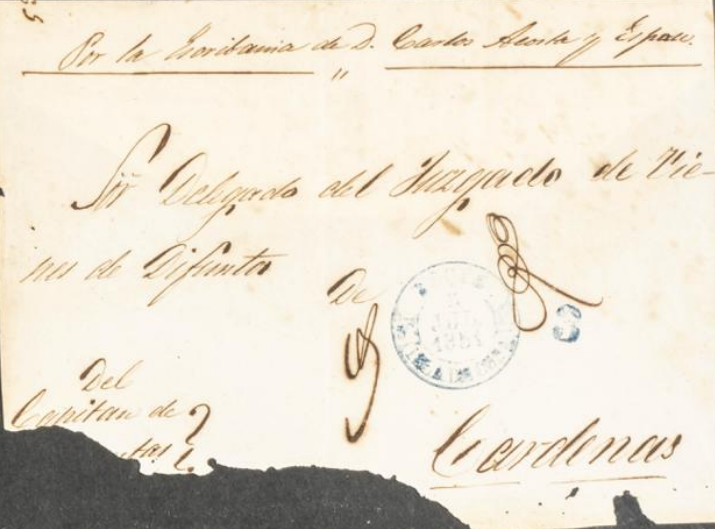 Por la Escribania de D. Carlos Acosta y
Sör Delegado del Juzgado de Vie-
nes de Difunto
De
Del
Capitan de
Cardenas